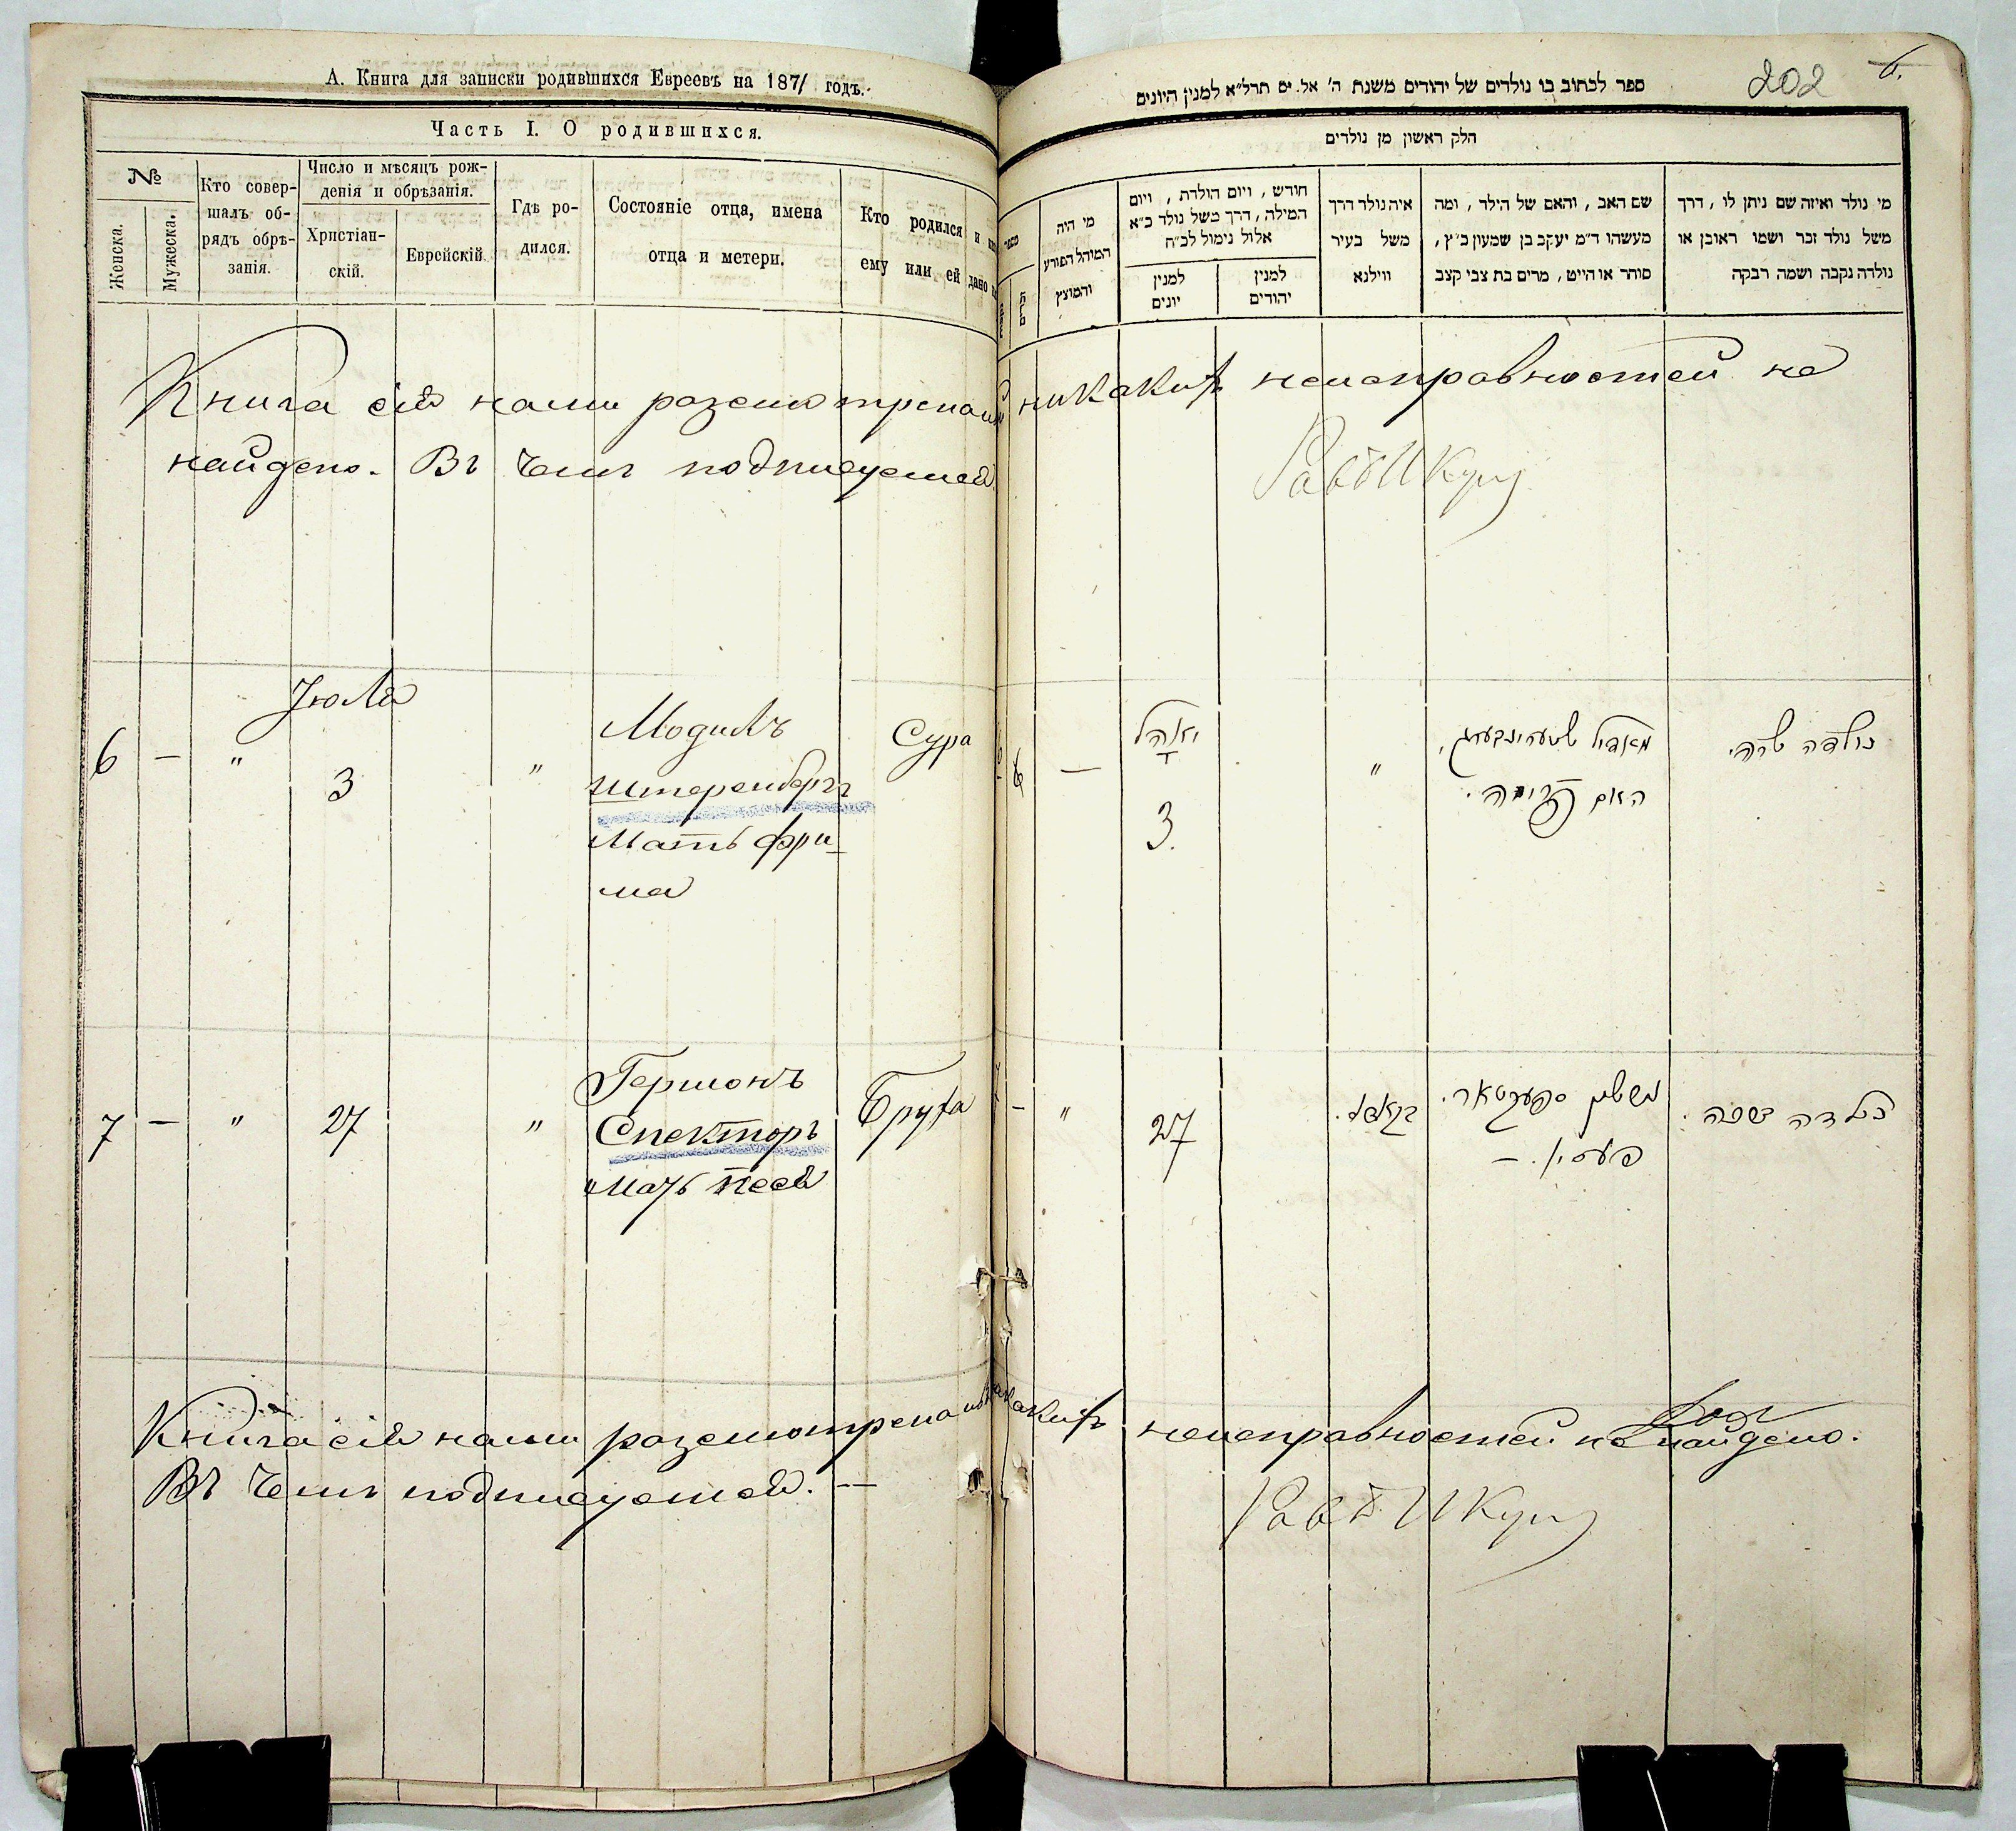 А. Книга для записки родившихся Евреевъ на 1871 годъ.
Часть I. О родившихся.
№
Женска.
Мужеска.
Кто совер-
шалъ об-
рядъ обрѣ-
занія.
Число и мѣсяцъ рож-
денія и обрѣзанія.
Христіан-
скій.
Еврейскій.
Гдѣ ро-
дился.
Состояніе отца, имена
отца и метери.
Кто родился и
ему или ей дано
Книга сія нами разсмотрена и никакихъ неисправностей не
найдено. Въ чемъ подписуемся
Іюля
6 — " 3 "
Модилъ
Штеренбергъ
Мать Фри-
ма
Сура
7 — " 27 "
Гершонъ
Спекторъ
Мать Песя
Бруха
Книга сія нами разсмотрена никакихъ неисправностей не найдено.
Въ чемъ подписуемся. —
202
6.
ספר לכתוב בו נולדים של יהודים משנת ה' אל. ים תרל"א למנין היונים
חלק ראשון מן נולדים
מי היה
המוהל הפורע
והמוצץ
חודש, ויום הולדת, ויום
המילה, דרך משל נולד כ"א
אלול נימול לכ"ח
למנין
יונים
למנין
יהודים
איה נולד דרך
משל בעיר
ווילנא
שם האב, והאם של הילד, ומה
מעשהו ד"מ יעקב בן שמעון כ"ץ,
סוחר או חייט, מרים בת צבי קצב
מי נולד ואיזה שם ניתן לו, דרך
משל נולד זכר ושמו ראובן או
נולדה נקבה ושמה רבקה
6 —
3.
"
מאדיל שטערינבערג,
האם פרימה.
נולדה שרה.
— " 27
גרשון ספעקטאר.
פעסיא. —